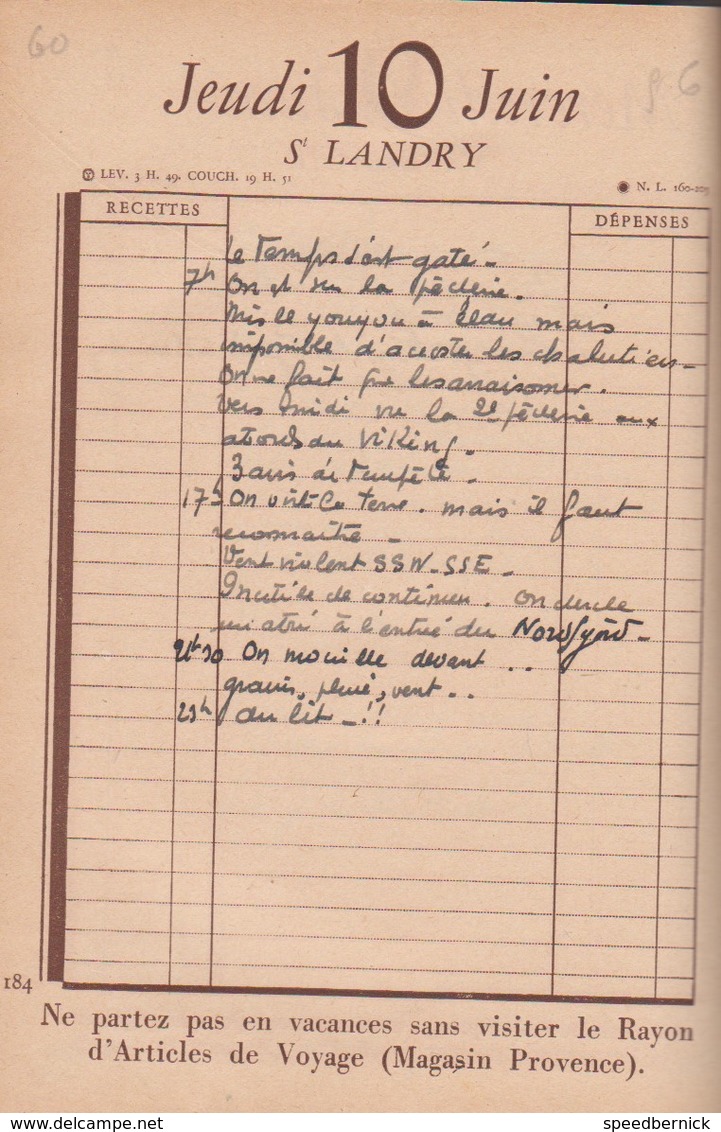 60
Jeudi 10 Juin
St LANDRY
LEV. 3 H. 49. COUCH. 19 H. 51
N. L. 160-205
RECETTES
DÉPENSES
Le Temps s'est gaté -
7h On est sur la pêcherie.
Mis le youyou à l'eau mais
impossible d'accoster les chalutiers -
On ne fait que les arraisonner.
Vers midi vu la 2e pêcherie aux
du Viking.
3 avis de Tempête.
17h On voit la terre. mais il faut
reconnaître -
Vent violent SSW-SSE -
Inutile de continuer. on cherche
un abri à l'entrée du Nordfjord -
21h30 On mouille devant ..
grains, pluie, vent ..
23h au lit - !!
184
Ne partez pas en vacances sans visiter le Rayon
d'Articles de Voyage (Magasin Provence).
speedbernick